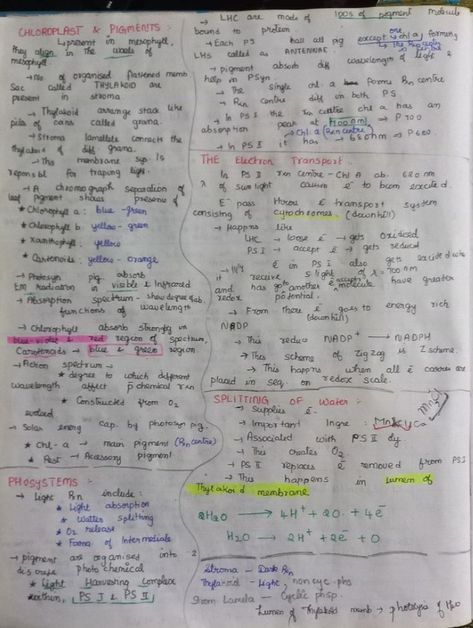 CHLOROPLAST & PIGMENTS :-
→ present in mesophyll,
they align in the walls of
mesophyll
→ No of organised flattened memb
Sac called THYLAKOID are
present in stroma
→ Thylakoid arrange stack like
pile of coins called grana.
→ Stroma lamellae connects the
thylakoid of diff. grana.
→ This membrane sys. is
responsibl for trapping light.
→ A chromograph separation of
leaf pigment shows presence of
* Chlorophyll a : blue - green
* Chlorophyll b : yellow - green
* Xanthophyll : yellow
* Carotenoids : yellow - orange
→ Photosyn pig. absorb
EM radiation in visible & Infrared
→ Absorption spectrum - show degree of ab.
functions of wavelength
→ Chlorophyll absorb strongly in
blue-violet & red region of spectrum,
Carotenoids → blue & green region
→ Action spectrum -
* degree to which different
wavelength affect p chemical rxn
* Constructed from O2
evolved
→ Solar energ cap. by photosyn pig.
* Chl - a → main pigment (Rxn centre)
* Rest → Accessory pigment
PHOSYSTEMS :-
→ Light Rxn include :
* Light absorption
* Water splitting
* O2 release
* Forma of Intermediate
→ pigment are organised into 2
discrete photochemical
* Light Harvesting Complex
within, PS I & PS II
→ LHC are made of 100s of pigment molecule
bound to protein
→ Each PS hall all pig except one chl a forming
LHS called as ANTENNAE.
→ pigment absorb diff wavelength of light &
help in PSyn.
→ The single chl a forms Rxn centre
→ Rxn centre diff in both PS.
→ In PS I the rxn centre chl a has an
absorption peak at 700nm → P700
→ Chl a (Rxn centre)
→ In PS II it has → 680nm → P680.
THE Electron Transport :-
→ In PS II rxn centre - Chl A ab. 680nm
λ of sunlight causing e- to becm excited.
→ E- pass throu e- transport system
consisting of cytochromes. (downhill)
→ Happns like
LHC → loose e- → gets oxidised
PS I → accept e- → gets reduced
→ e- in PS I also gets excited wh
it receive s.light of λ = 700nm
and has go to another e- accept molecule have greater
redox potential.
→ From there e- goes to energy rich
(downhill)
NADP
→ This reduc NADP+ → NADPH
→ This scheme of zigzag is Z scheme.
→ This happns when all e- carriers are
placed in seq. on redox scale.
SPLITTING OF Water :-
→ Supplies e-.
→ Important Ingre : Mn, Cl, Ca
MnCl
→ Associated with PS II dy.
→ This creates O2.
→ PS II replaces e- removed from PSI
→ This happens in lumen of
Thylakoid membrane
2H2O → 4H+ + 2O. + 4e-
H2O → 2H+ + 2e- + O
Stroma - Dark Rxn
Thylakoid - Light, non cyc. phs
Strom Lamela - Cyclic phsp.
Lumen of Thylakoid memb → photolysis of H2O